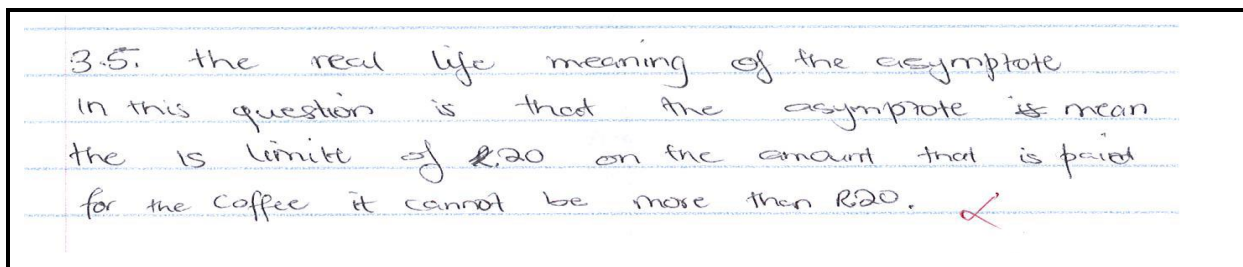 3.5. the real life meaning of the asymptote
in this question is that the asymptote is mean
the is limite of R20 on the amount that is paied
for the coffee it cannot be more than R20.